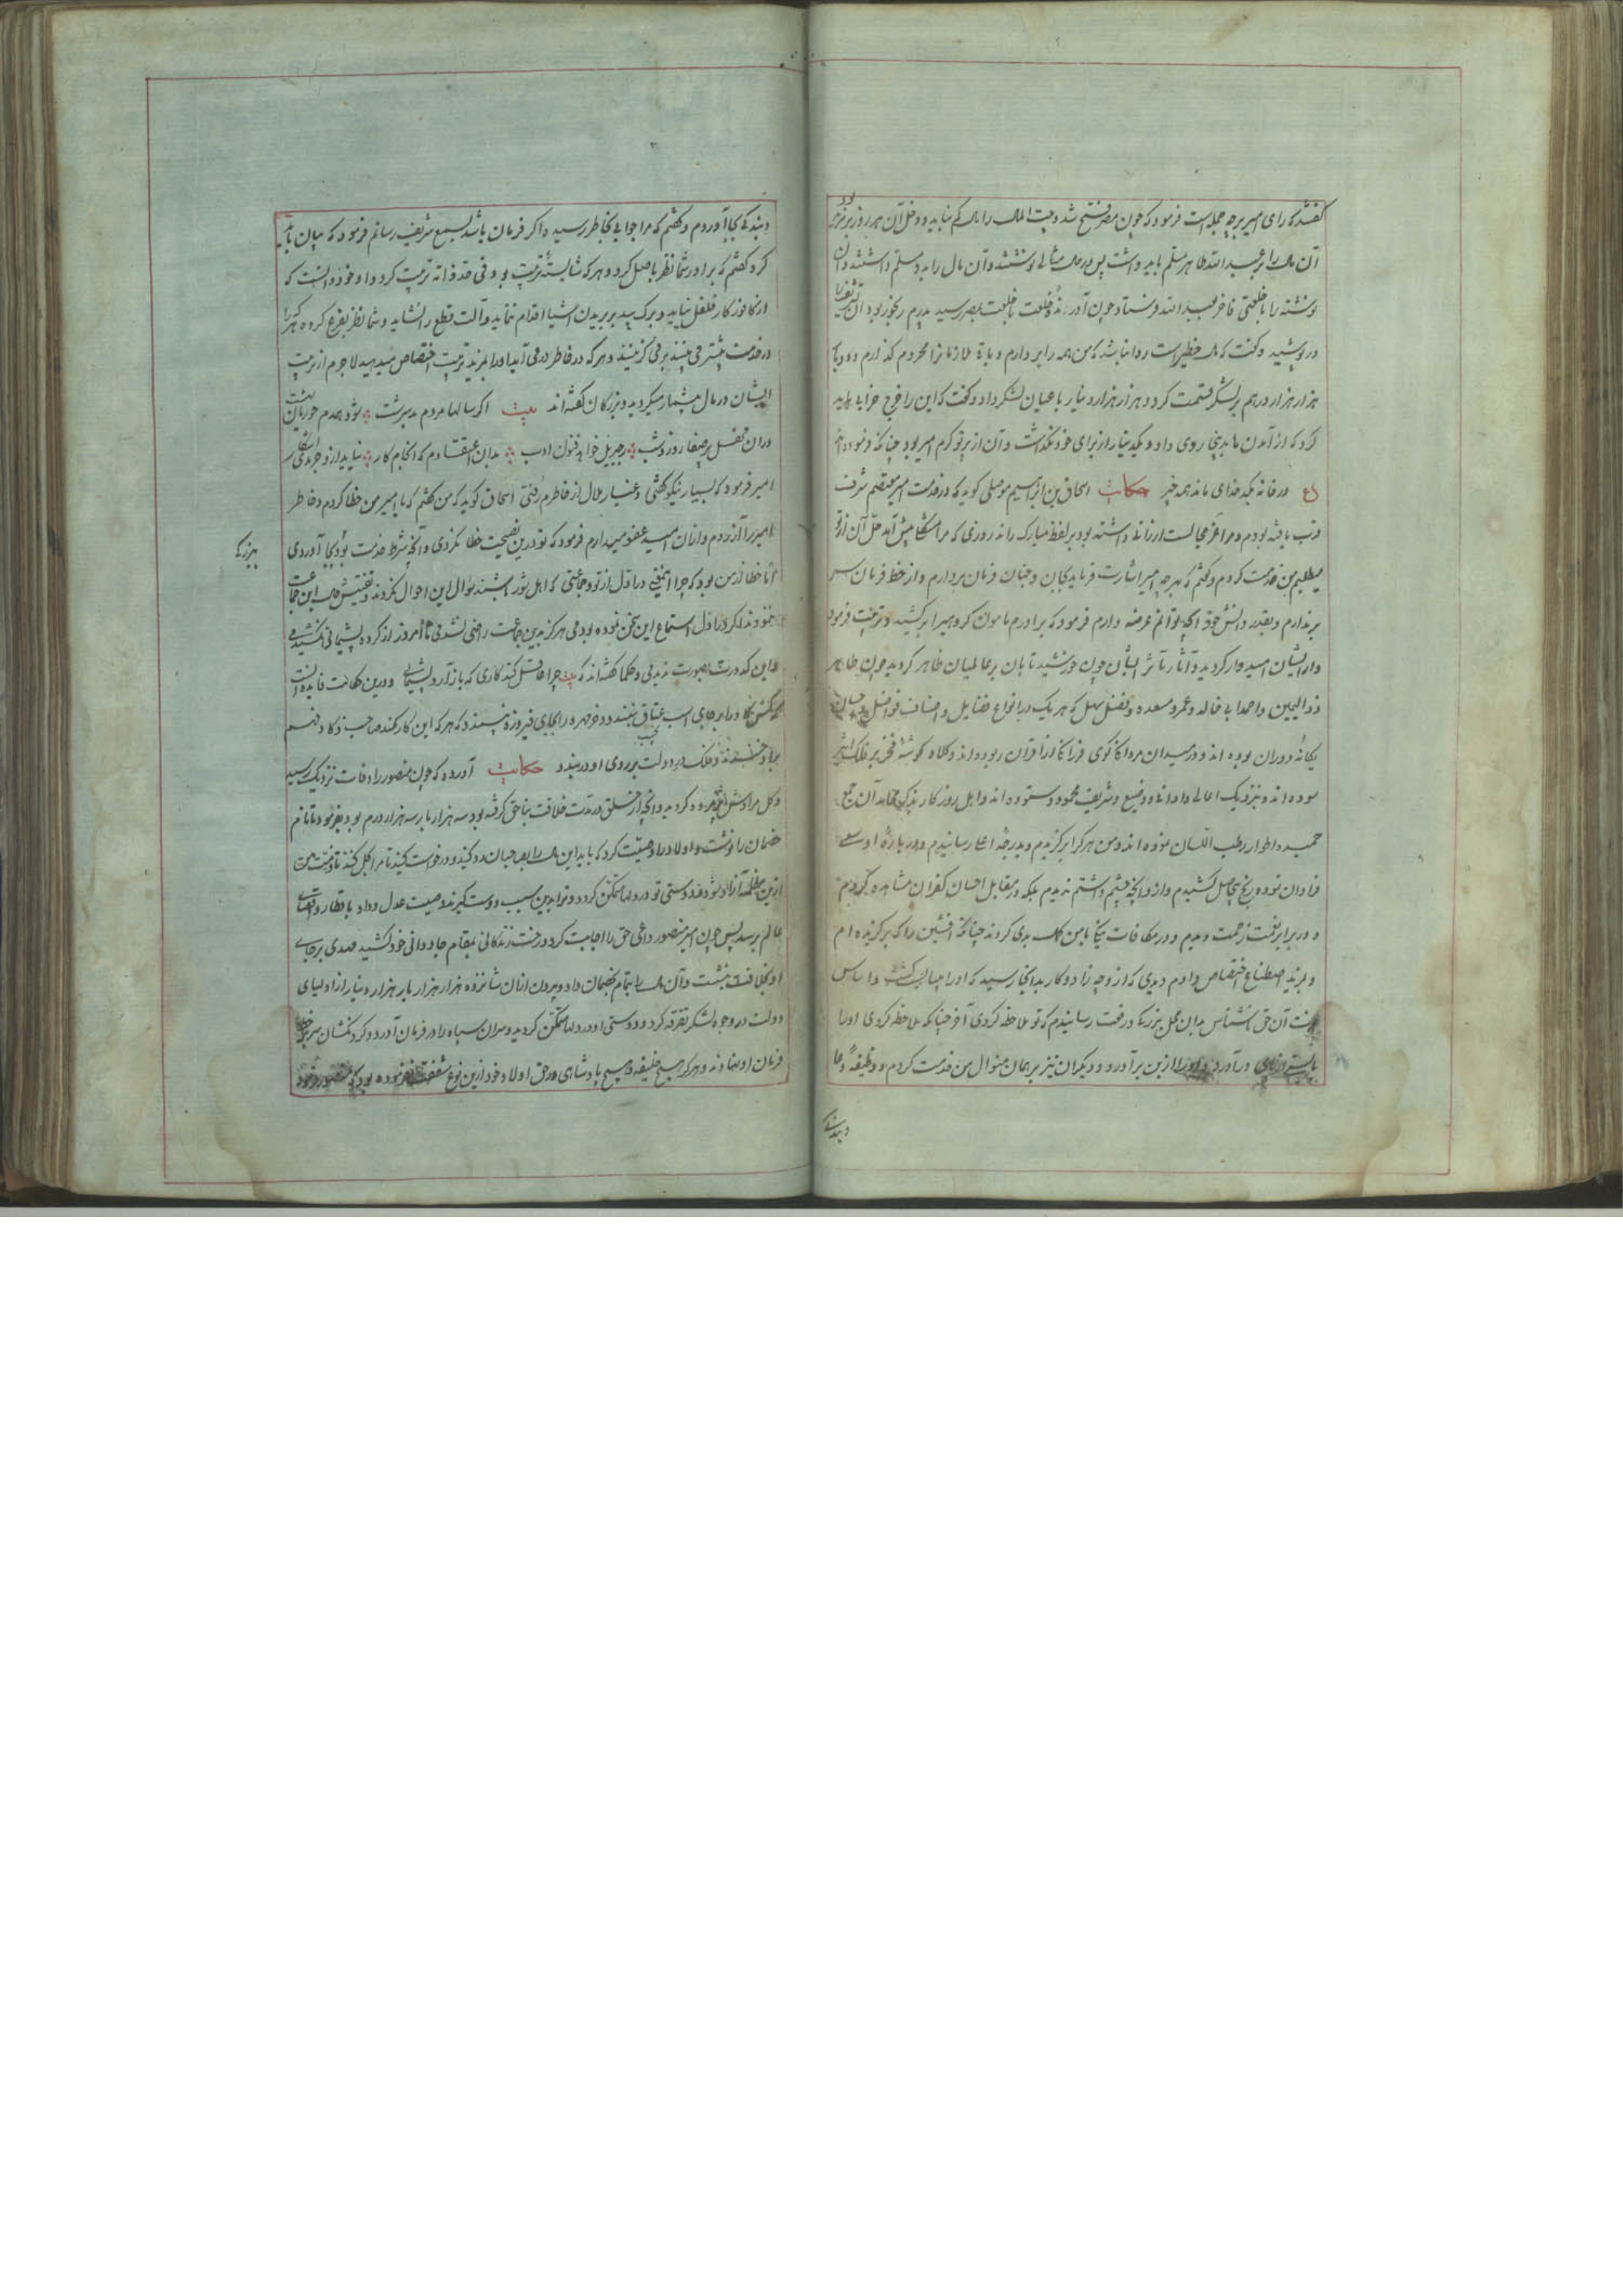 گفتند که رای امیر بر چه جمله است فرمود که چون مصر فتح شد و بیت المال را مالی نیاید و دخل آن هر روز
آن مال را بر عبید الله طاهر مسلم باید داشت پس در مثالی نوشتند و آن مال را بدو مسلم داشتند و آن
نوشته را با خلعتی فاخر بعبید الله فرستاد چون آوردند و خلعت بمصر رسید پدرم رنجور بود آن تشریف را
در پوشید و گفت که خطیر است روا نباشد که من همه را بردارم و باقی ملازمان را محروم گذارم
هزار هزار درهم بر لشکر قسمت کرد و هزار هزار دینار باعیان لشکر داد و گفت که این را خرج خرابی باید
کرد که از آمدن ما بدینجا روی داد و یکدینار از برای خود نگذاشت و آن از پرتو کرم امیر بود چنانکه فرموده
ع در خانه یکه خدای ماند همه چیز حکایت اسحاق بن ابراهیم موصلی گوید که در خدمت امیر معتصم شرف
قرب یافته بودم و مرا عز مجالست ارزانی داشته بود بر لفظ مبارک راند روزی که مرا مشکلی پیش آمد حل آن از تو
میطلبم من خدمت کردم و گفتم که بهر چه امیر اشارت فرماید بجان و جنان فرمان بردارم و از خط فرمان سر
برندارم و بقدر دانش خود آنچه توانم عرضه دارم فرمود که برادرم مامون گروهی را برکشید و تربیت فرمود
و از ایشان امیدوار گردید و آثار تاثر ایشان چون خورشید تابان بر عالمیان ظاهر گردید چون طاهر
ذو الیمین و احمد ابی خالد و عمرو مسعده و فضل سهل که هر یک در انواع فضایل و اصناف فواضل
یگانه دوران بوده اند و در میدان مردانگی گوی فرزانگی از اقران ربوده اند و کلاه گوشه فخر بر فلک اثیر
سوده اند و بنزدیک اعالی و ادانی و وضیع و شریف محمود و ستوده اند و اهل روزگار بذکر محامد آن جمع
حمیده اطوار رطب اللسان بوده اند و من هر کرا برگزیدم و بدرجه اعلی رسانیدم و در باره او سعی
فراوان نموده رنج بیحاصل کشیدم و از و آنچه چشم داشتم ندیدم بلکه در مقابل احسان کفران مشاهده کردم
و در برابر نعمت زحمت دیدم و در مکافات نیکی با من بدی کردند چنانکه افشین را که برگزیده ام
و بمزید اصطناع اختصاص دادم دیدی که از و چه زاد و کار بدانجا رسید که او را بایست کشت و اساس
آن حق ناشناس بدان محل بزرگی و رفعت رسانیدم که تو ملاحظه کردی آخر چنانکه ملاحظه کردی او را
بایست از پای درآورد و او را از بن برآورد و دیگران نیز بر همان منوال من خدمت کردم و وظیفه دعا
و بندگی
و بندگی بجا آوردم و گفتم که مرا جوابی بخاطر رسیده اگر فرمان باشد بسمع شریف رسانم فرمود که بیان باید
کرد گفتم که برادر شما نظر باصل کرد و هر که شایسته تربیت بود فی حد ذاته تربیت کرد و او خود دانست که
از کافور کار فلفل نیاید و برگ بید بر بریدن اشیا اقدام ننماید و آلت قطع را نشاید و شما نظر بفرع کرده هر کرا
در خدمت بیشتر می بینند بر می گزینند و هر که در خاطر در می آید او را بمزید تربیت اختصاص میدهید لاجرم از تربیت
ایشان در مال پشیمان میگردید و بزرگان گفته اند بیت اگر سالها مردم بدسرشت بود همدم حوریان بهشت
در ان محفل پر صفا روز و شب ز جبریل خواند فنون ادب بدان اعتقادم که انجام کار نیاید ازو جز بدی آشکار
امیر فرمود که بسیار نیکو گفتی و غبار ملال از خاطرم رفتی اسحاق گوید که من گفتم که یا امیر من خطا کردم و خاطر
امیر را آزردم و ازان امید عفو میدارم فرمود که تو درین نصیحت خطا نکردی و آنچه شرط خدمت بود بجا آوردی
بزرگی
اما خطا از من بود که چرا در اول از تو و جماعتی که اهل شور باشند سوال این احوال نکردم و تفتیش این جماعت
ننمودم که در اول استماع این سخن نموده بودمی هرگز بدین جماعت راضی نشدمی تا امروز از کرده پشیمانی نکشیدمی
و این کدورت بصورت ندیدمی و حکما گفته اند که بیت چرا عاقل کند کاری که باز آرد پشیمانی و درین حکایت فایده آنست
که کس را بر جای اسب عتاق نبندد و خرمهره را بجای فیروزه نپسندد که هر که این کار کند صاحب ذکا و فهم
برو خندند و فلک در دولت بر روی او در ببندد حکایت آورده که چون منصور را وفات نزدیک رسید
و گل مرادش پژمرده گردید و آنچه از خلق در مدت خلافت بناحق گرفته بود سه هزار بار سه هزار درم بود بفرمود تا نام
خصمان را نوشت و اولاد را وصیت کرد که باید این مال را بصاحبان رد کنید و درخواست کنید تا مرا بحل کنند تا ذمت من
ازین مظلمه آزاد شود و دوستی تو در دلها متمکن گردد و ترا بدین سبب دوست گیرند و صیت عدل و داد باقطار و اقصای
عالم برسد پس چون امیر منصور داعی حق را اجابت کرد و رخت زندگانی بمقام جاودانی خود کشید مهدی بر جای
او بخلافت نشست و آن مال را بتمام بخصمان داد و بیرون ازان شانزده هزار هزار بار هزار دینار از اولیای
دولت در وجوه لشکر تفرقه کرد و دوستی او در دلها متمکن گردید و سران سپاه را در فرمان آورد و گردنکشان سر بر خط
فرمان او نهادند و هرگز هیچ خلیفه و هیچ پادشاهی در حق اولاد خود ازین نوع شفقت ننموده بود که منصور نمود